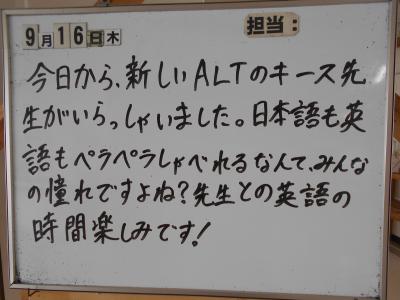 9月16日木
担当：
今日から、新しいALTのキース先
生がいらっしゃいました。日本語も英
語もペラペラしゃべれるなんて、みんな
の憧れですよね？先生との英語の
時間楽しみです！